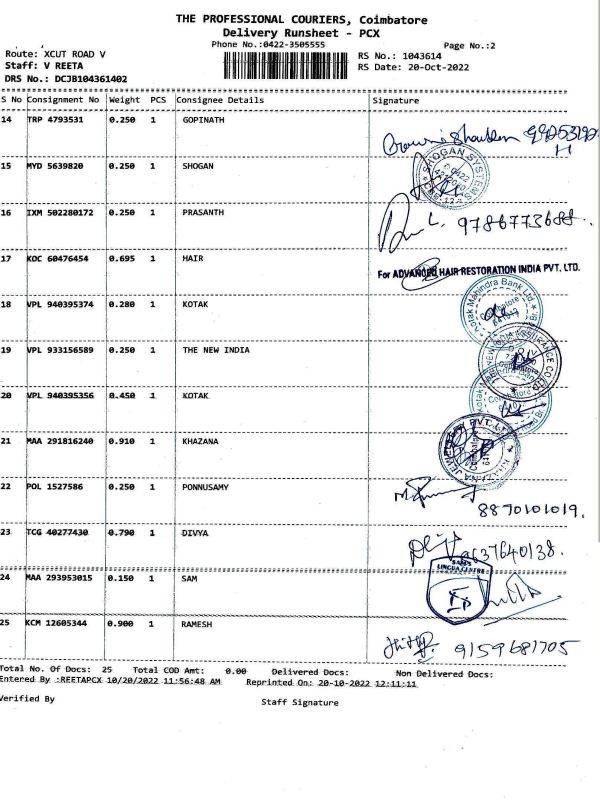 THE PROFESSIONAL COURIERS, Coimbatore
Delivery Runsheet - PCX
Phone No.:0422-3505555
Page No.:2
Route: XCUT ROAD V
RS No.: 1043614
Staff: V REETA
RS Date: 20-Oct-2022
DRS No.: DCJB104361402
S No Consignment No Weight PCS Consignee Details Signature
14 TRP 4793531 0.250 1 GOPINATH
15 MYD 5639820 0.250 1 SHOGAN
SHOGAN SYSTEMS
16 IXM 502280172 0.250 1 PRASANTH
9786773688
17 KOC 60476454 0.695 1 HAIR
For ADVANCED HAIR RESTORATION INDIA PVT. LTD.
18 VPL 940395374 0.280 1 KOTAK
Kotak Mahindra Bank Ltd
Coimbatore
19 VPL 933156589 0.250 1 THE NEW INDIA
20 VPL 940395356 0.450 1 KOTAK
21 MAA 291816240 0.910 1 KHAZANA
22 POL 1527586 0.250 1 PONNUSAMY
8870101019.
23 TCG 40277430 0.790 1 DIVYA
9637640138.
24 MAA 293953015 0.150 1 SAM
SAM'S
LINGUA CENTRE
25 KCM 12605344 0.900 1 RAMESH
9159681705
Total No. Of Docs: 25 Total COD Amt: 0.00 Delivered Docs: Non Delivered Docs:
Entered By :REETAPCX 10/20/2022 11:56:48 AM Reprinted On: 20-10-2022 12:11:11
Verified By
Staff Signature